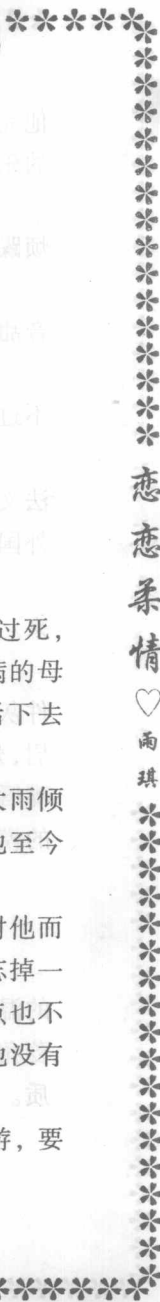 恋恋柔情♡雨琪
过死，
病的母
活下去
大雨倾
他至今
对他而
忘掉一
点也不
也没有
游，要